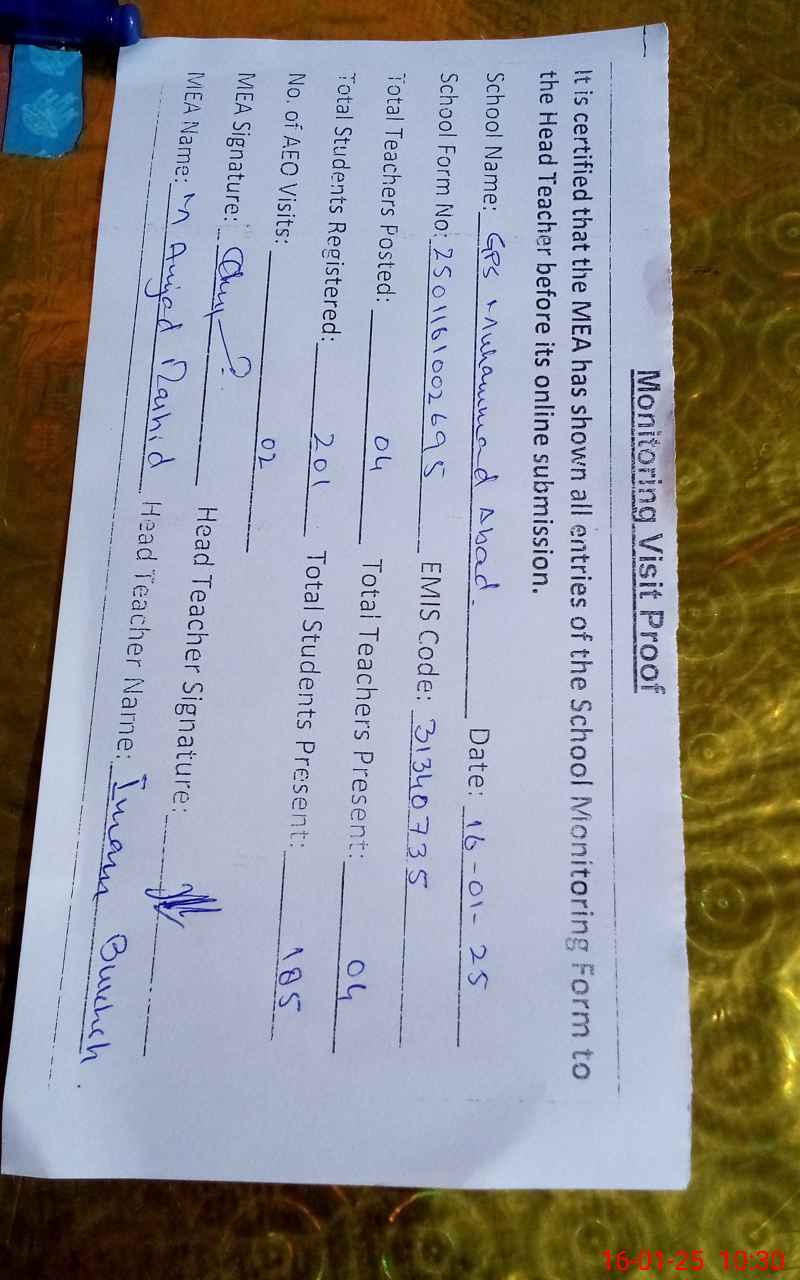 Monitoring Visit Proof
It is certified that the MEA has shown all entries of the School Monitoring Form to
the Head Teacher before its online submission.
School Name: GPS Muhammad Abad. Date: 16-01-25
School Form No: 2501161002695 EMIS Code: 31340735
Total Teachers Posted: 04 Total Teachers Present: 04
Total Students Registered: 201 Total Students Present: 185
No. of AEO Visits: 02
MEA Signature: Head Teacher Signature:
MEA Name: M Amjad Rashid Head Teacher Name: Imam
16-01-25 10:30